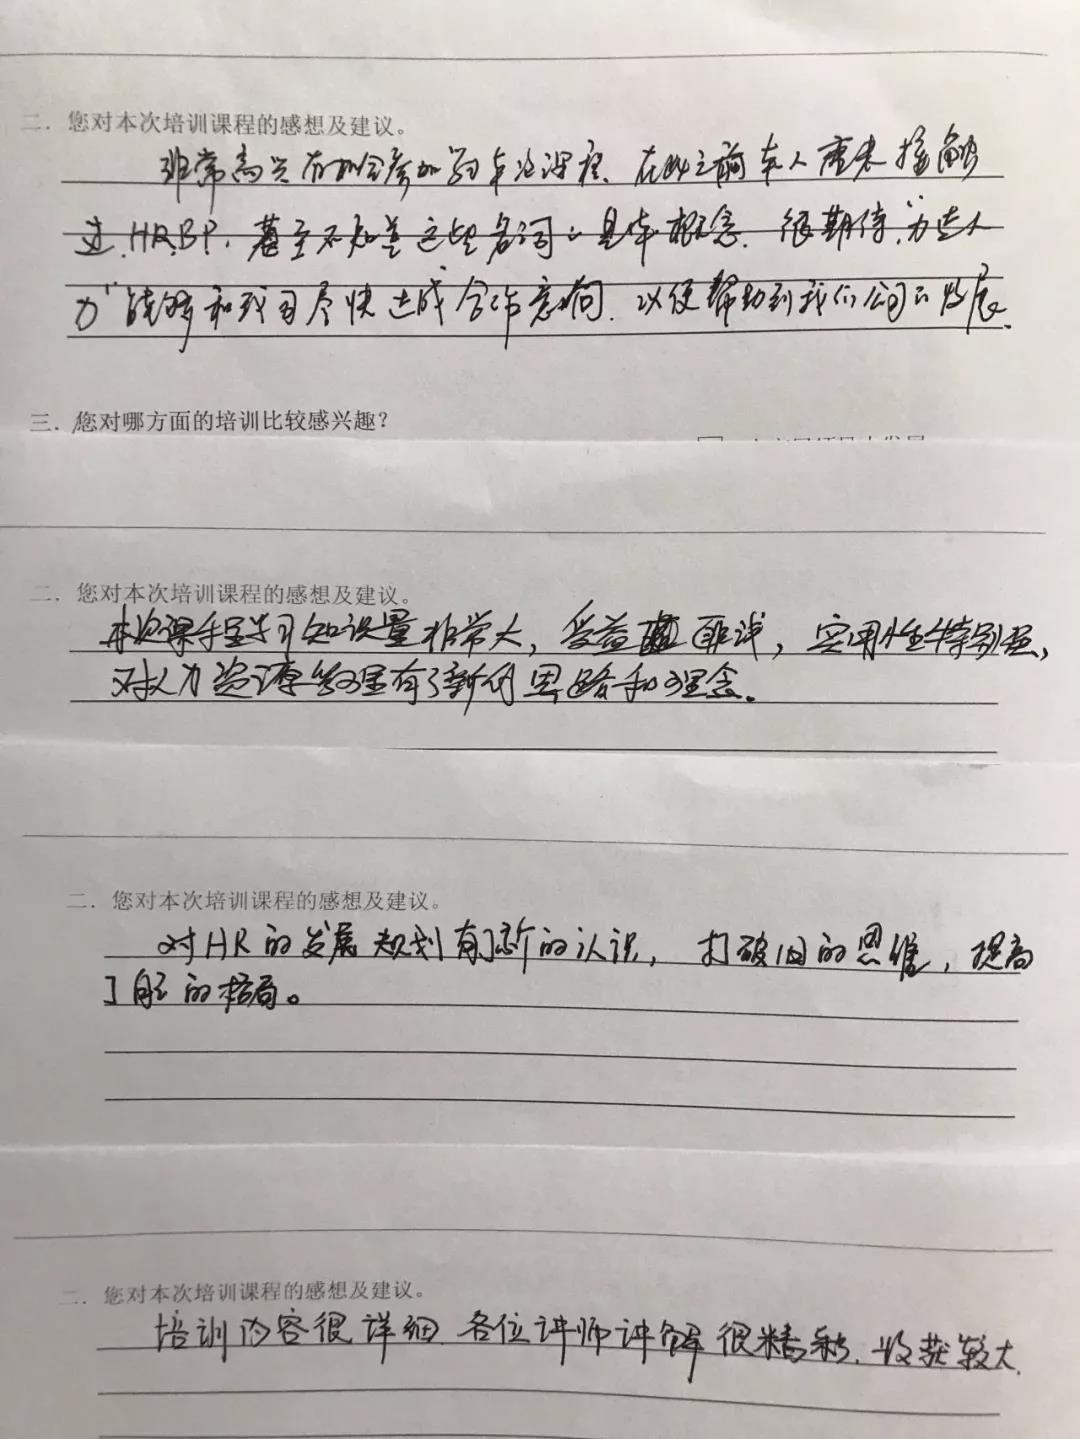 二. 您对本次培训课程的感想及建议。
非常高兴有机会参加本次课程，在此之前本人从未接触
过HRBP，甚至不知道这些名词的具体概念。很期待"为
力"能够和我司尽快达成合作意向，以便帮助到我们公司的发展。
三. 您对哪方面的培训比较感兴趣？
二. 您对本次培训课程的感想及建议。
本次课程学习知识量非常大，受益匪浅，实用性特别强，
对人力资源管理有了新的思路和理念。
二. 您对本次培训课程的感想及建议。
对HR的发展规划有了新的认识，打破旧的思维，提高
了自己的格局。
二. 您对本次培训课程的感想及建议。
培训内容很详细，各位讲师讲解很精彩，收获较大.